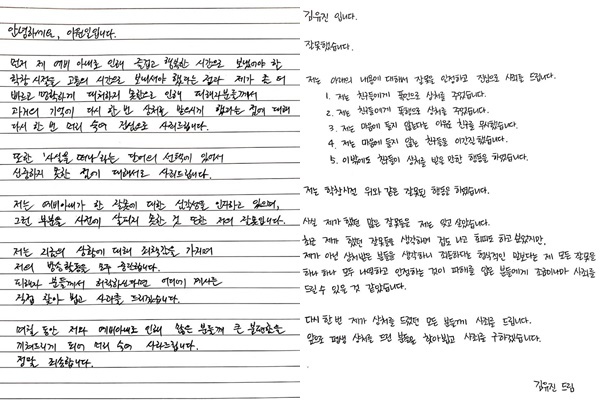 안녕하세요, 이원일입니다.
먼저 제 예비 아내로 인해 즐겁고 행복한 시간으로 보냈어야 할
학창 시절을 고통의 시간으로 보내셔야 했다는 점과 제가 좀 더
빠르고 명확하게 대처하지 못함으로 인해 피해자분들께서
과거의 기억에 다시 한 번 상처를 받으시게 했다는 점에 대해
다시 한 번 머리 숙여 진심으로 사과드립니다.
또한 '사실을 떠나'라는 단어의 선택에 있어서
신중하지 못한 점에 대해서도 사과드립니다.
저는 예비아내가 한 잘못에 대한 심각성을 인지하고 있으며,
그런 부분을 사전에 살피지 못한 것 또한 저의 잘못입니다.
저는 지금의 상황에 대해 죄책감을 가지며
저의 방송활동을 모두 중단합니다.
피해자 분들께서 허락하신다면 어디에 계시든
직접 찾아 뵙고 사과를 드리겠습니다.
며칠 동안 저와 예비아내로 인해 많은 분들께 큰 불편함을
끼쳐드리게 되어 머리 숙여 사과드립니다.
정말 죄송합니다.
김유진 입니다.
잘못했습니다.
저는 아래의 내용에 대해서 잘못을 인정하고 진심으로 사죄를 드립니다.
1. 저는 친구들에게 폭언으로 상처를 주었습니다.
2. 저는 친구들에게 폭행으로 상처를 주었습니다.
3. 저는 마음에 들지 않는다는 이유로 친구를 무시했습니다.
4. 저는 마음에 들지 않는 친구들을 이간질 했습니다.
5. 이밖에도 친구들이 상처를 받을 만한 행동을 하였습니다.
저는 학창시절 위와 같은 잘못된 행동을 하였습니다.
사실 제가 했던 많은 잘못들을 저는 잊고 살았습니다.
최근 제가 했던 잘못들을 생각하며 겁도 나고 회피도 하고 싶었지만,
제가 아닌 상처받은 분들을 생각하니 죄송하다는 형식적인 말보다는 제 모든 잘못을
하나 하나 모두 나열하고 인정하는 것이 피해를 입은 분들에게 조금이나마 사죄를
드릴 수 있을 것 같았습니다.
다시 한 번 제가 상처를 드렸던 모든 분들께 사죄를 드립니다.
앞으로 평생 상처를 드린 분들을 찾아뵙고 사죄를 구하겠습니다.
김유진 드림